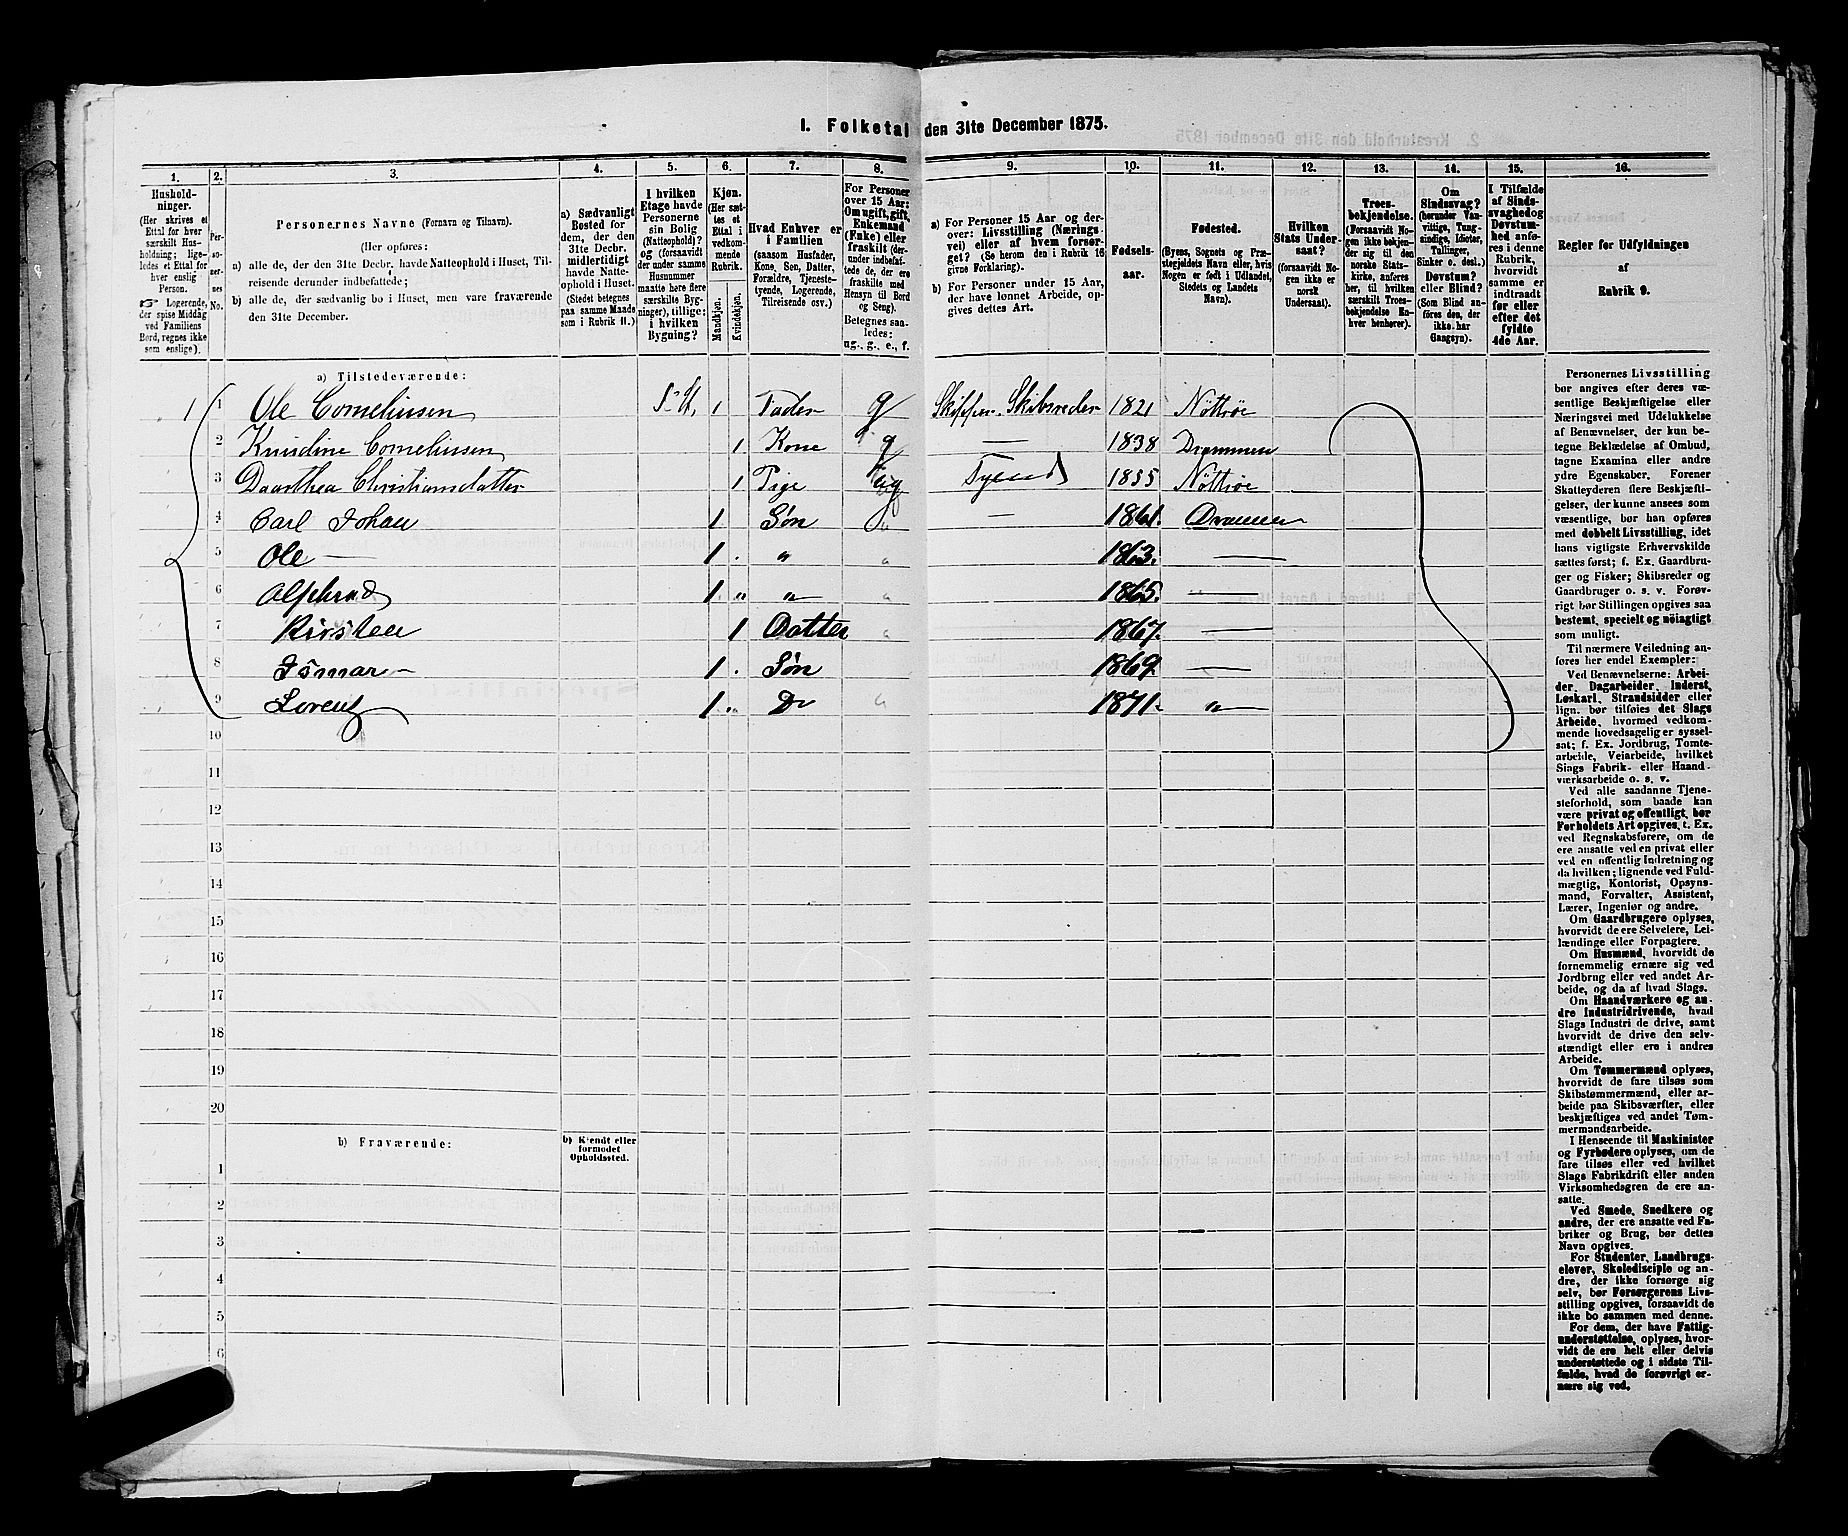 I. Folketal den 31te December 1875.
1. 2. 3. 4. 5. 6. 7. 8. 9. 10. 11. 12. 13. 14. 15. 16.
Husholdninger.
(Her skrives et
Ettal for hver
særskilt Husholdning;
ligeledes et Ettal for
hver enslig
Person.
☞ Logerende,
der spise Middag
ved Familiens
Bord, regnes ikke
som enslige).
Personernes No.
Personernes Navne (Fornavn og Tilnavn).
(Her opføres:
a) alle de, der den 31te Decbr. havde Natteophold i Huset, Tilreisende derunder indbefattede;
b) alle de, der sædvanlig bo i Huset, men vare fraværende
den 31te December.
a) Sædvanligt
Bosted for
dem, der den
31te Decbr.
midlertidigt
havde Natteophold i Huset.
(Stedet betegnes
paa samme Maade
som i Rubrik 11.)
I hvilken
Etage havde
Personerne
sin Bolig
(Natteophold)?
og (forsaavidt
der under samme
Husnummer
maatte høre flere
særskilte Bygninger), tillige:
i hvilken
Bygning?
Kjøn.
(Her sættes et
Ettal i
vedkommende
Rubrik.
Mandkjøn.
Kvindekjøn.
Hvad Enhver er
i Familien
(saasom Husfader,
Kone, Søn, Datter,
Forældre, Tjenestetyende, Logerende,
Tilreisende osv.)
For Personer
over 15 Aar:
Om ugift, gift,
Enkemand
(Enke) eller
fraskilt (derunder indbefattede de, der ere
fraskilte med
Hensyn til Bord
og Seng).
Betegnes saaledes:
ug., g., e., f.
a) For Personer 15 Aar og derover: Livsstilling (Næringsvei) eller af hvem forsørget? (Se herom den i Rubrik 16
givne Forklaring).
b) For Personer under 15 Aar,
der have lønnet Arbeide, opgives dettes Art.
Fødselsaar.
Fødested.
(Byens, Sognets og Præstegjeldets Navn eller, hvis
Nogen er født i Udlandet,
Stedets og Landets
Navn).
Hvilken
Stats Undersaat?
(forsaavidt Nogen ikke er
norsk
Undersaat).
Troesbekjendelse.
(Forsaavidt Nogen ikke bekjender sig til den
norske Statskirke, anføres
her, til hvilken
særskilt Troesbekjendelse Enhver henhører).
Om
Sindssvag?
(herunder Vanvittige, Tungsindige, Idioter,
Tullinger,
Sinker o. desl.)
Døvstum?
eller Blind?
(Som Blind anføres den, der
ikke har
Gangsyn).
I Tilfælde
af Sindssvaghed og
Døvstumhed anføres i denne
Rubrik,
hvorvidt
samme er
indtraadt
før eller
efter det
fyldte
4de Aar.
Regler for Udfyldningen
af
Rubrik 9.
a) Tilstedeværende:
1 1 Ole Corneliusen 1 Fader g Skipper. Skibsreder 1821 Nøttrøe
2 Knudine Corneliusen 1 Kone g — 1838 Drammen
3 Daarthea Christiansdatter 1 Pige ug Tyende 1855 Nøttrøe
4 Carl Johan 1 Søn — 1861. Drammen
5 Ole — 1 " 1863. —
6 Alphred 1 " " 1865. —
7 Kirsten 1 Datter 1867. —
8 Ismar — 1 Søn 1869. —
9 Lorentz 1 " Do 1871. " —
10
11
12
13
14
15
16
17
18
19
20
b) Fraværende:
b) Kjendt eller
formodet
Opholdssted.
1
2
3
4
5
6
Personernes Livsstilling
bør angives efter deres væsentlige Beskjæftigelse eller
Næringsvei med Udelukkelse
af Benævnelser, der kun betegne Beklædelse af Ombud,
tagne Examina eller andre
ydre Egenskaber. Forener
Skatteyderen flere Beskjæftigelser, der kunne ansees som
væsentlige, bør han opføres
med dobbelt Livsstilling, idet
hans vigtigste Erhvervskilde
sættes først; f. Ex. Gaardbruger og Fisker; Skibsreder og
Gaardbruger o. s. v. Forøvrigt bør Stillingen opgives saa
bestemt, specielt og nöiagtigt
som muligt.
Til nærmere Veiledning anføres her endel Exempler:
Ved Benævnelserne: Arbeider, Dagarbeider, Inderst,
Løskarl, Strandsidder eller
lign. bør tilføies det Slags
Arbeide, hvormed vedkommende hovedsagelig er sysselsat; f. Ex. Jordbrug, Tomtearbeide, Veiarbeide, hvilket
Slags Fabrik- eller Haandværksarbeide o. s. v.
Ved alle saadanne Tjenesteforhold, som baade kan
være privat og offentligt, bør
Forholdets Art opgives, t. Ex.
ved Regnskabsførere, om de
ere ansatte ved en privat eller
ved en offentlig Indretning og
da hvilken; lignende ved Fuldmægtig, Kontorist, Opsynsmand, Forvalter, Assistent,
Lærer, Ingeniør og andre.
Om Gaardbrugere oplyses,
hvorvidt de ere Selveiere, Leilændinge eller Forpagtere.
Om Husmænd, hvorvidt de
fornemmelig ernære sig ved
Jordbrug eller ved andet Arbeide, og da af hvad Slags.
Om Haandværkere og andre Industridrivende, hvad
Slags Industri de drive, samt
hvorvidt de drive den selvstændigt eller ere i andres
Arbeide.
Om Tømmermænd oplyses,
hvorvidt de fare tilsøs som
Skibstømmermænd, eller arbeide paa Skibsværfter, eller
beskjæftiges ved andet Tømmermandsarbeide.
I Henseende til Maskinister
og Fyrbødere oplyses, om de
fare tilsøs eller ved hvilket
Slags Fabrikdrift eller anden
Virksomhedsgren de ere ansatte.
Ved Smede, Snedkere og
andre, der ere ansatte ved Fabriker og Brug, bør dettes
Navn opgives.
For Studenter, Landbrugselever, Skoledisciple og andre, der ikke forsørge sig
selv, bør Forsørgerens Livsstilling opgives, forsaavidt de
ikke bo sammen med denne.
For dem, der have Fattigunderstøttelse, oplyses, hvorvidt de ere helt eller delvis
understøttede og i sidste Tilfælde, hvad de forøvrigt ernære sig ved.